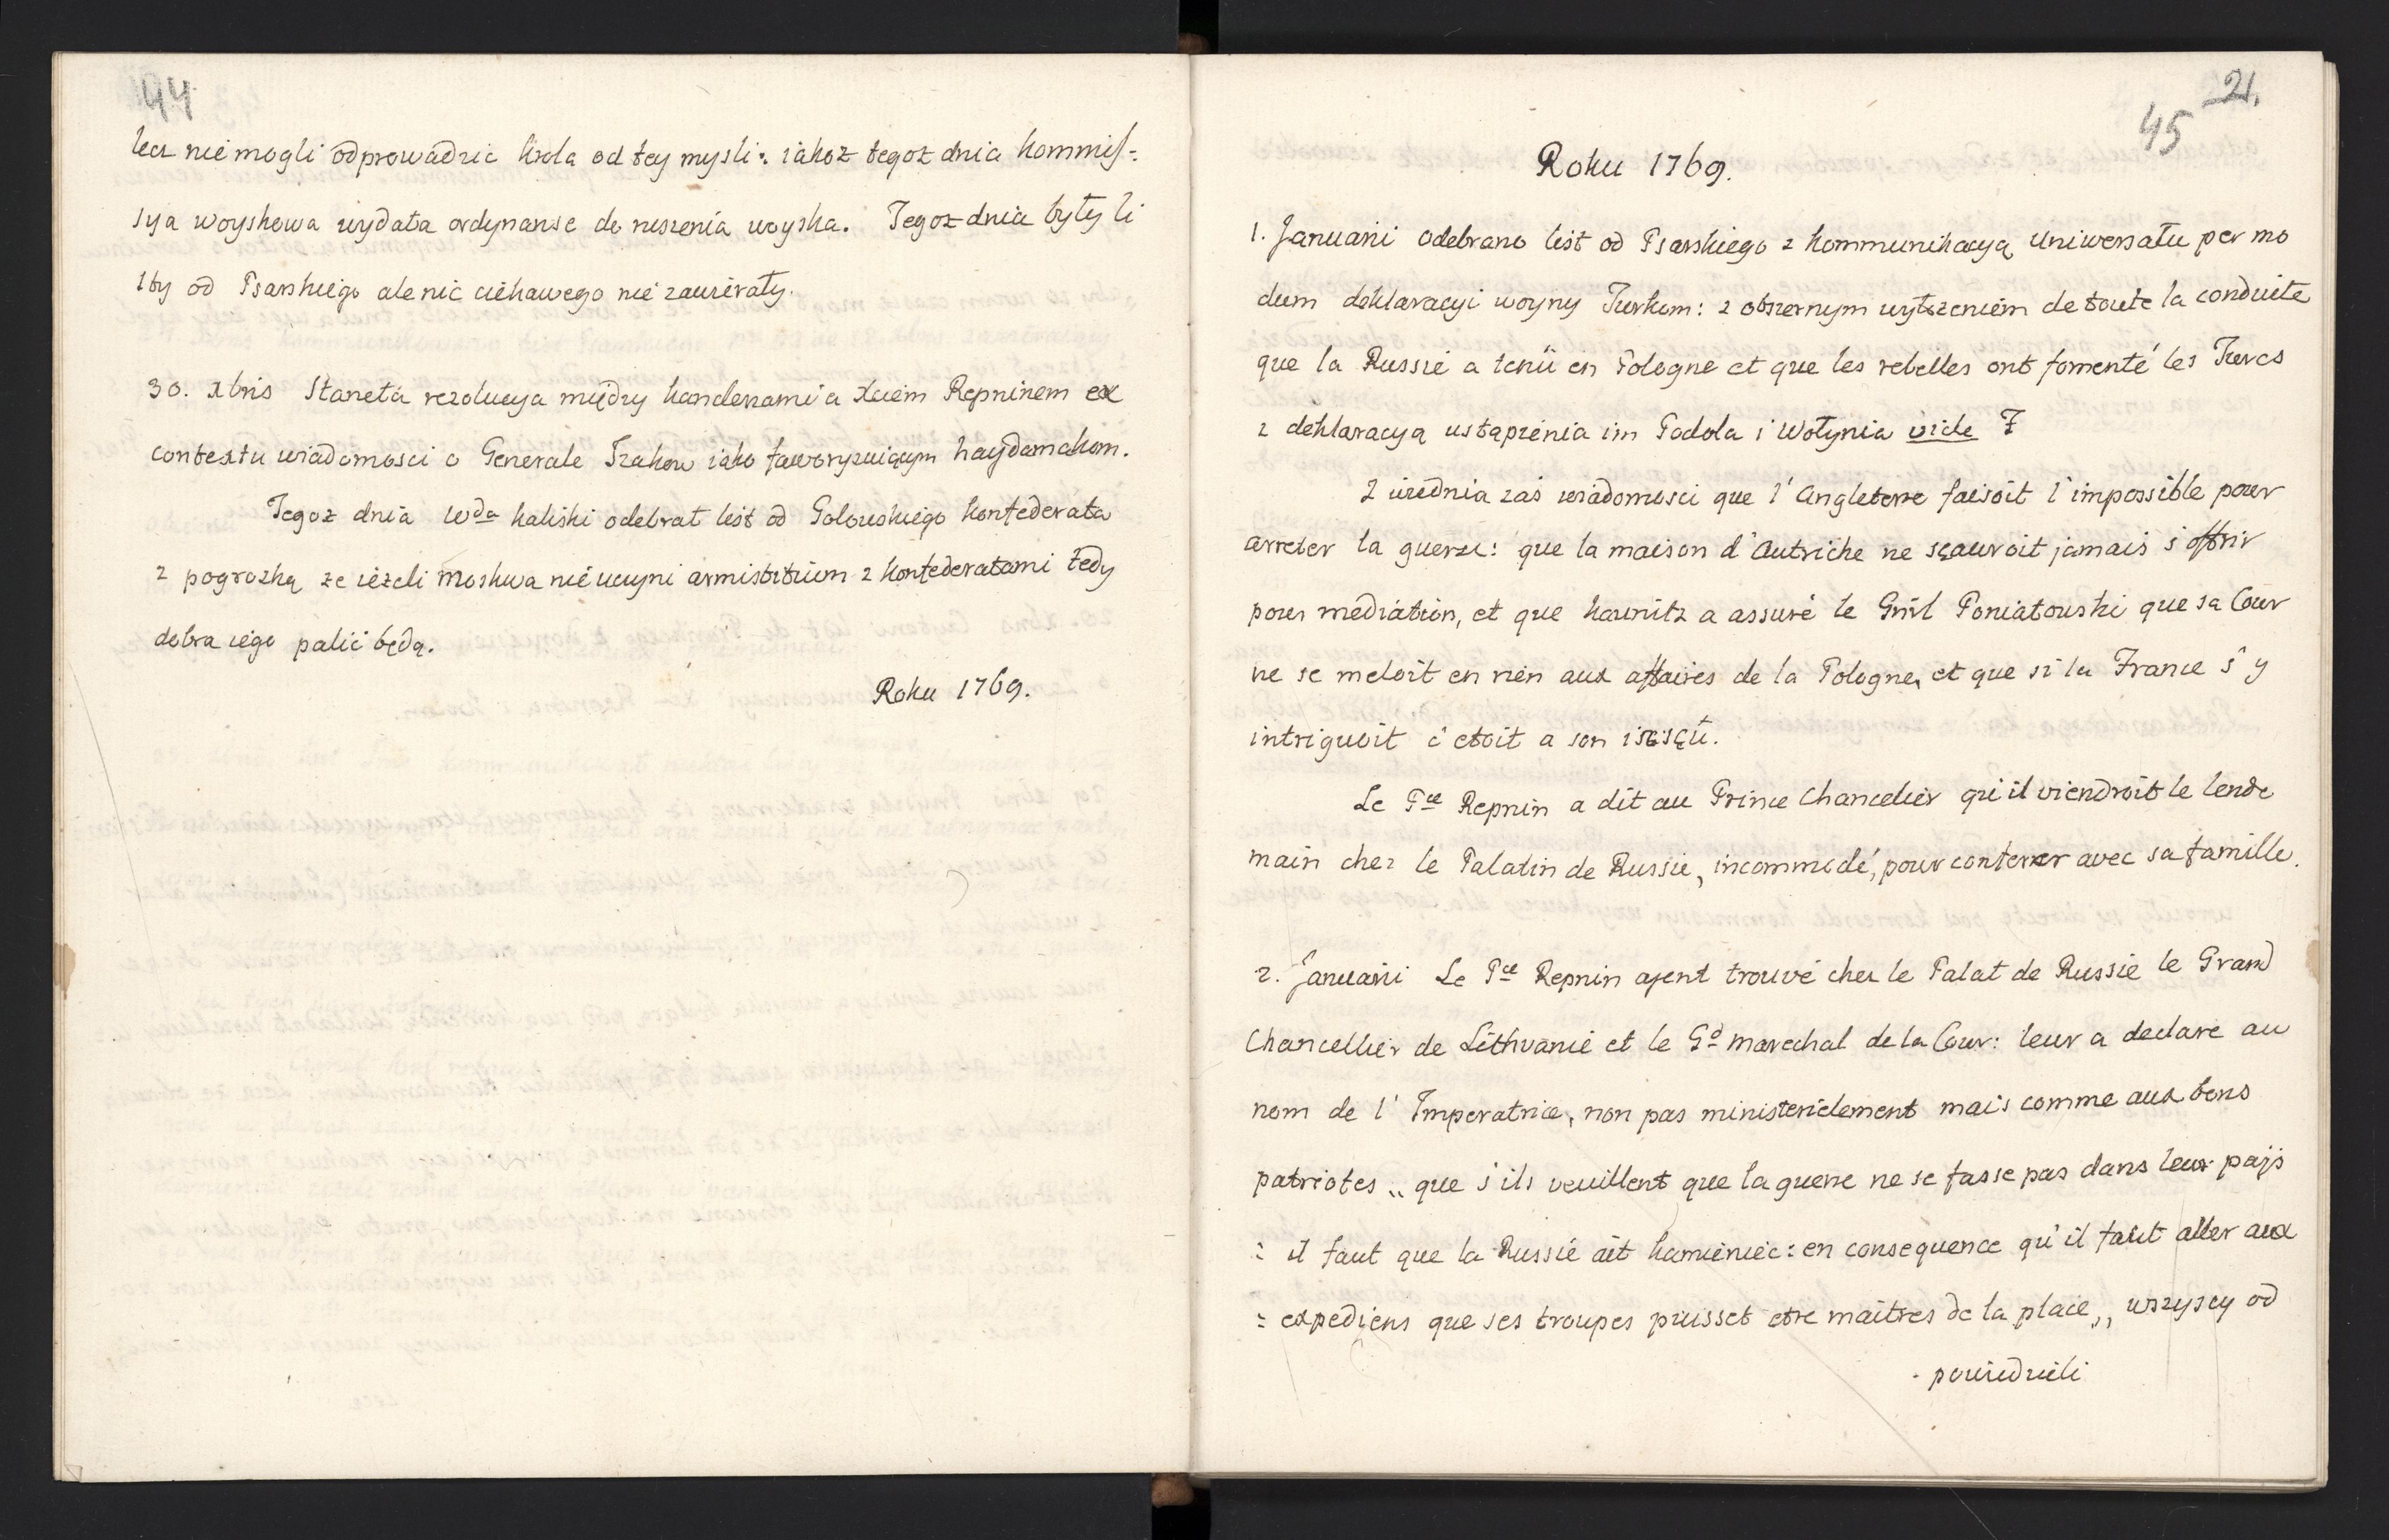 44
lecz nie mogli odprowadzic krola od tey mysli: iakoz tegoz dnia kommis=
sya woyskowa wydała ordynanse do ruszenia woyska. Tegoz dnia były li
sty od Psarskiego ale nic ciekawego nie zawierały.
30. xbris Staneła rezolucya między kanclerzami a Xciem Repninem ex
contextu wiadomosci o Generale Trakow iako faworyzuiącym haydamakom.
Tegoz dnia Wda kaliski odebrał list od Golowskiego konfederata
z pogrozką ze iezeli moskwa nie uczyni armistitium z konfederatami tedy
dobra iego palic będą.
Roku 1769.
21.
45
Roku 1769.
1. Januarii odebrano list od Psarskiego z kommunikacyą uniwersału per mo
dum deklaracyi woyny Turkom: z obszernym wytszczeniem de toute la conduite
que la Russie a tenü en Pologne et que les rebelles ont fomenté les Turcs
z deklaracyą ustąpienia im Podola i Wołynia vide F
Z Wiednia zaś wiadomosci que l'Angleterre faisoit l'impossible pour
arreter la guerre: que la maison d'Autriche ne sçauroit jamais s'offrir
pour mediation, et que kaunitz a assuré le Gnrl Poniatowski que sa Cour
ne se meloit en rien aux affaires de la Pologne, et que si la France s'y
intriguoit c'etoit a son insçu.
Le Pce Repnin a dit au Prince Chancelier qu'il viendroit le lende
main chez le Palatin de Russie, incommodé, pour conferer avec sa famille.
2. Januarii Le Pce Repnin ajent trouvé chez le Palat de Russie le Grand
Chancellier de Lithvanie et le Gd marechal de la Cour: leur a declare au
nom de l'Imperatrice, non pas ministerielement mais comme aux bons
patriotes „ que s'ils veuillent que la guerre ne se fasse pas dans leur pajs
= il faut que la Russie ait kamieniec: en consequence qu'il faut aller aux
= expediens que ses troupes puisset etre maitres de la place,, wszyscy od
- powiedzieli